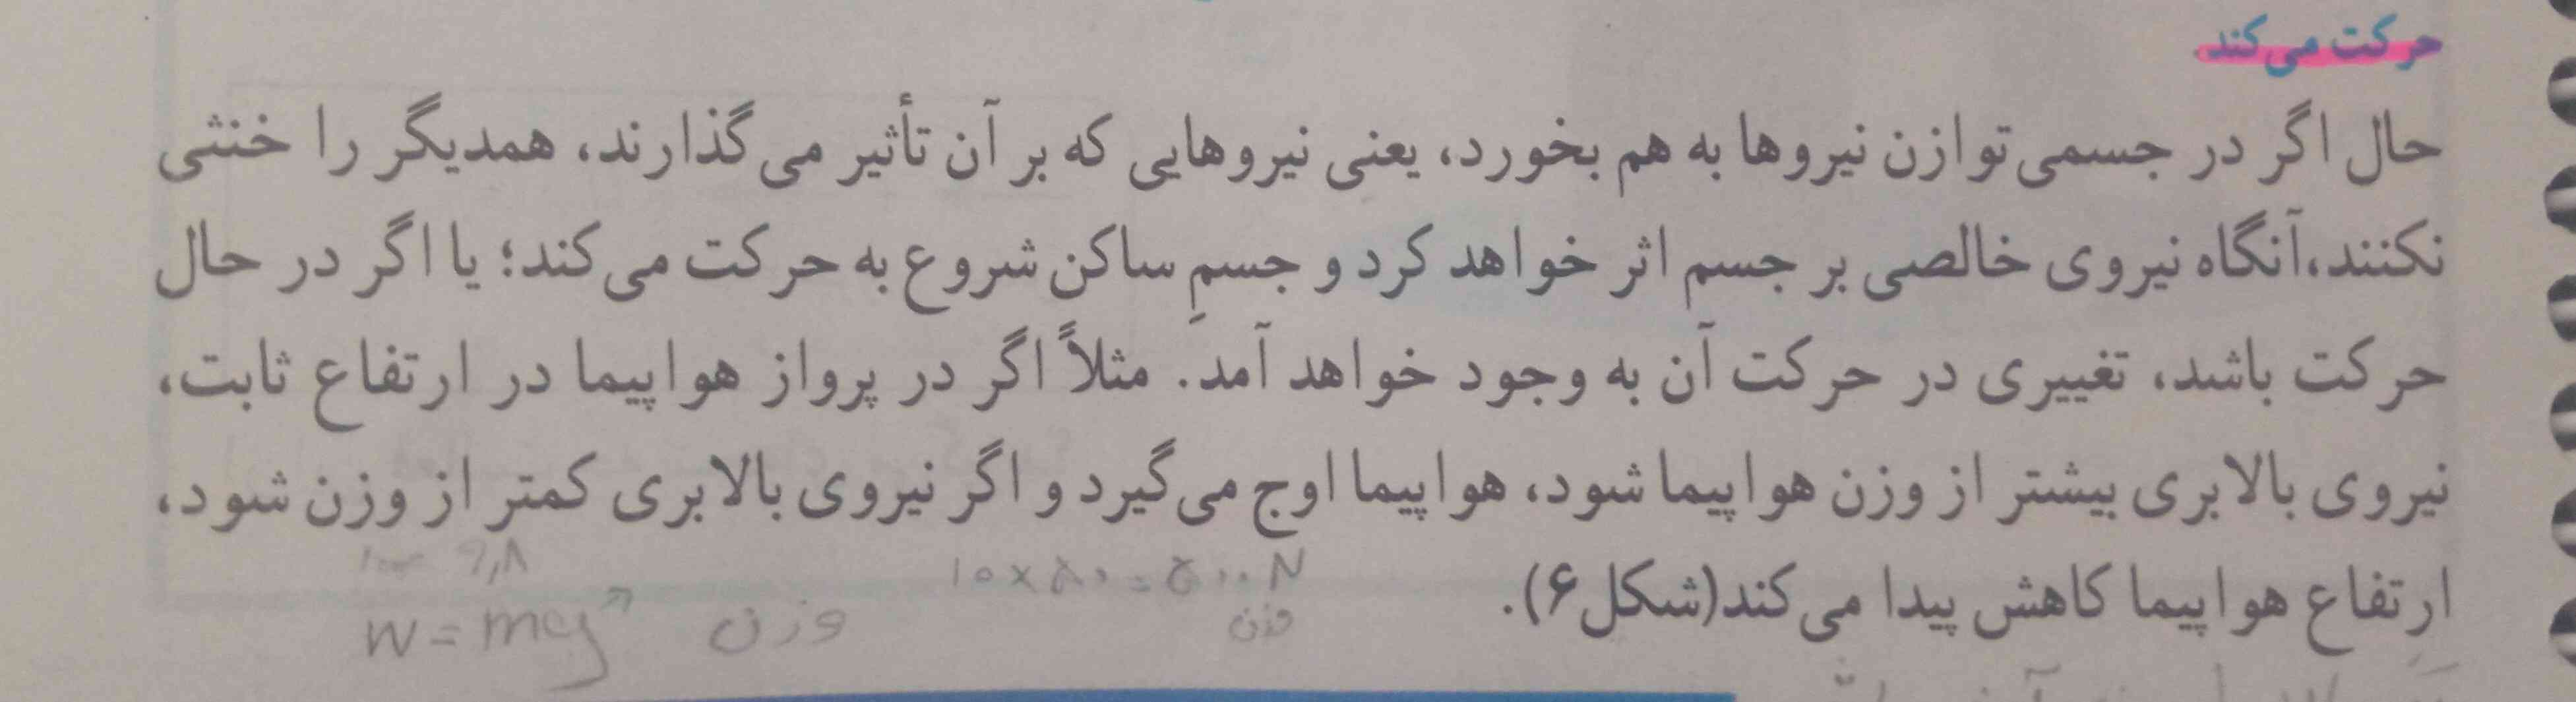 حرکت می‌کند.
حال اگر در جسمی توازن نیروها به هم بخورد، یعنی نیروهایی که بر آن تأثیر می‌گذارند، همدیگر را خنثی
نکنند،آنگاه نیروی خالصی بر جسم اثر خواهد کرد و جسمِ ساکن شروع به حرکت می‌کند؛ یا اگر در حال
حرکت باشد، تغییری در حرکت آن به وجود خواهد آمد. مثلاً اگر در پرواز هواپیما در ارتفاع ثابت،
نیروی بالابری بیشتر از وزن هواپیما شود، هواپیما اوج می‌گیرد و اگر نیروی بالابری کمتر از وزن شود،
ارتفاع هواپیما کاهش پیدا می‌کند(شکل۶).
۱۰×۵۰=۵۰۰ N
۹٫۸
وزن
وزن W=mg